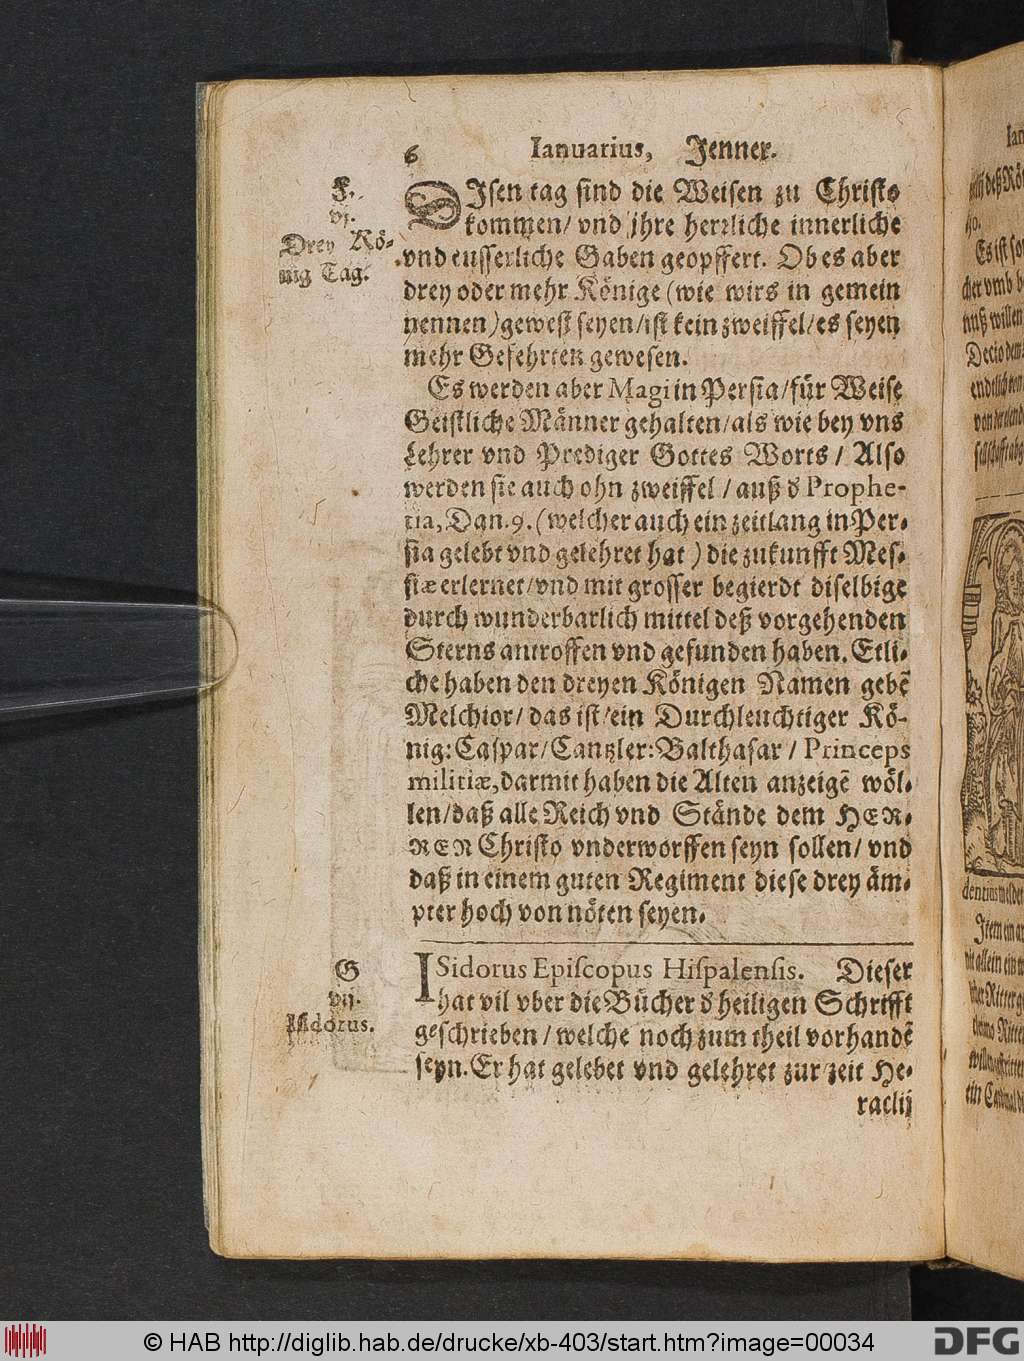 6 Ianuarius, Jenner.
F.
vj.
Drey Kö-
nig Tag.
DIsen tag sind die Weisen zu Christo
kommen/ vnd ihre herrliche innerliche
vnd eusserliche Gaben geopffert. Ob es aber
drey oder mehr Könige (wie wirs in gemein
nennen) gewest seyen/ ist kein zweiffel/ es seyen
mehr Gefehrten gewesen.
Es werden aber Magi in Persia/ für Weise
Geistliche Männer gehalten/ als wie bey vns
Lehrer vnd Prediger Gottes Worts / Also
werden sie auch ohn zweiffel / auß d Prophe-
tia, Dan. 9. (welcher auch ein zeitlang in Per-
sia gelebt vnd gelehret hat ) die zukunfft Mes-
siæ erlernet/ vnd mit grosser begierdt diselbige
durch wunderbarlich mittel deß vorgehenden
Sterns antroffen vnd gefunden haben. Etli-
che haben den dreyen Königen Namen gebẽ
Melchior/ das ist/ ein Durchleuchtiger Kö-
nig: Caspar/ Cantzler: Balthasar / Princeps
militiæ, darmit haben die Alten anzeigẽ wöl-
len/ daß alle Reich vnd Stände dem HER-
REN Christo vnderworffen seyn sollen/ vnd
daß in einem guten Regiment diese drey äm-
pter hoch von nöten seyen.
G
vij.
Isidorus.
ISidorus Episcopus Hispalensis. Dieser
hat vil vber die Bücher d heiligen Schrifft
geschrieben / welche noch zum theil vorhandẽ
seyn. Er hat gelebet vnd gelehret zur zeit He-
raclij
© HAB http://diglib.hab.de/drucke/xb-403/start.htm?image=00034
DFG